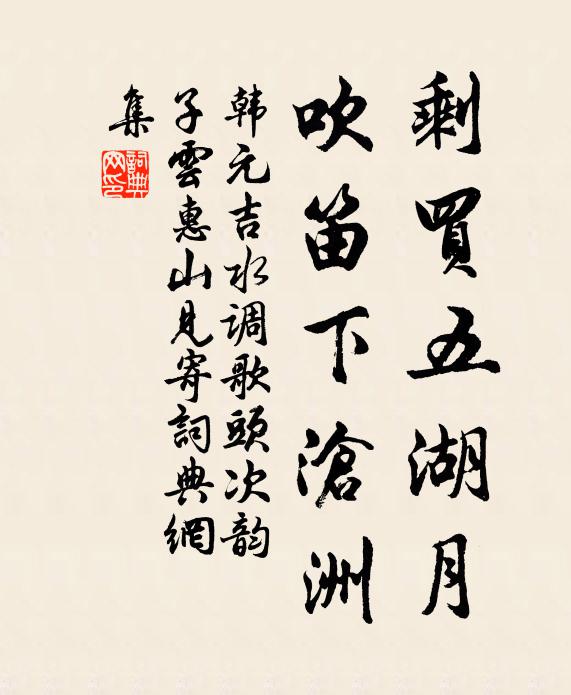 剩買五湖月
吹笛下滄洲
韩元吉水调歌頭次韵
子雲惠山見寄詞典網
集
詞典网印